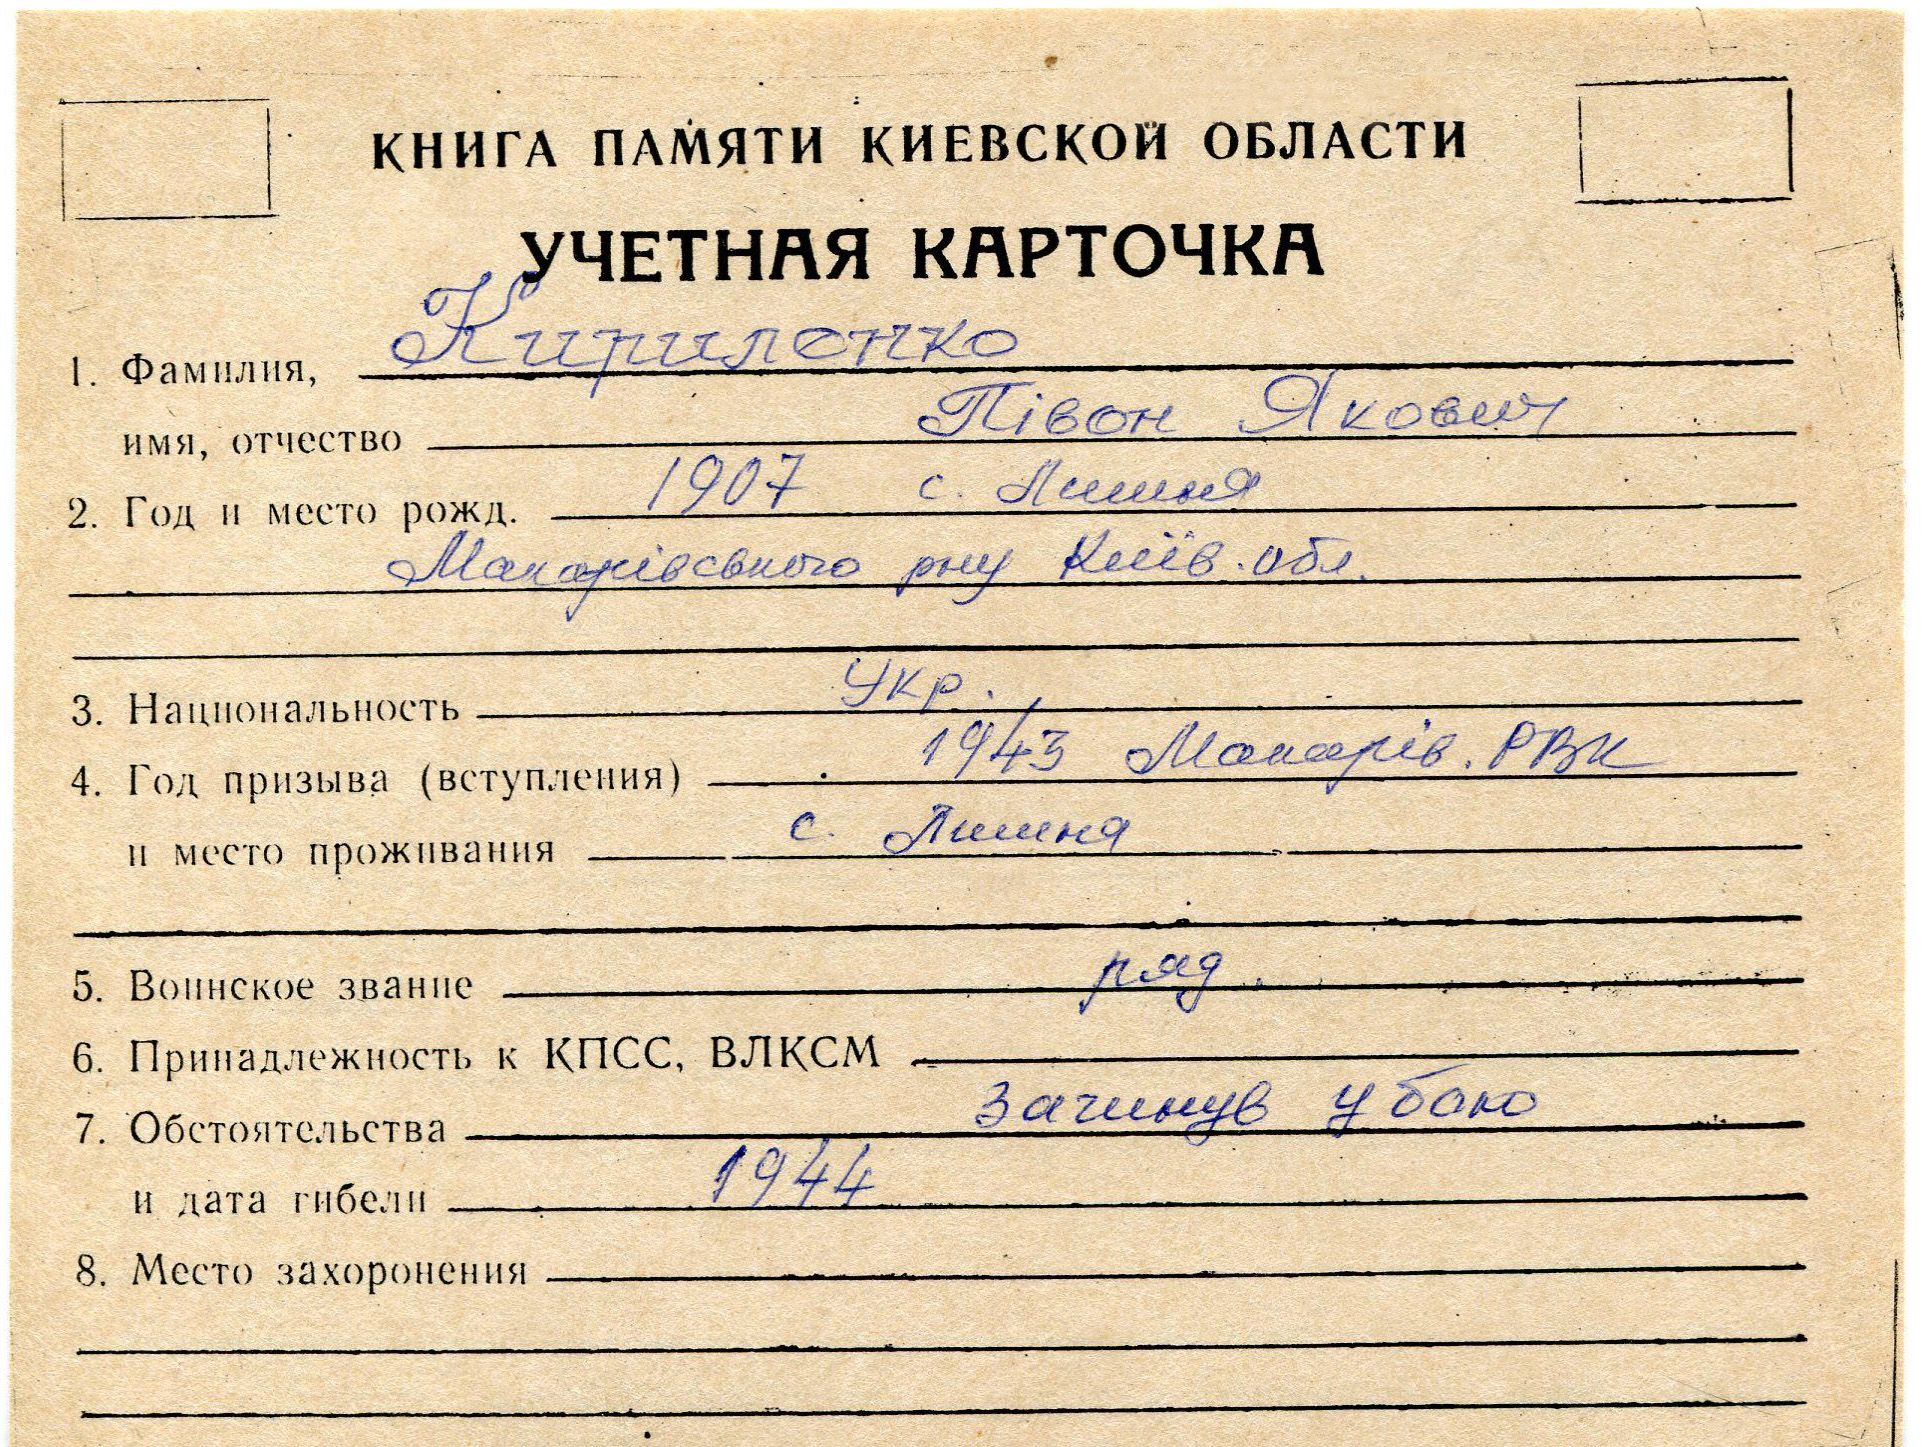 КНИГА ПАМЯТИ КИЕВСКОЙ ОБЛАСТИ
УЧЕТНАЯ КАРТОЧКА
1. Фамилия, Кириленко
имя, отчество Півон Якович
2. Год и место рожд. 1907 с. Лишня
Макарівського рну Київ. обл.
3. Национальность Укр.
4. Год призыва (вступления) 1943 Макарів. РВК
и место проживания с. Лишня
5. Воинское звание ряд.
6. Принадлежность к КПСС, ВЛКСМ
7. Обстоятельства загинув у бою
и дата гибели 1944
8. Место захоронения